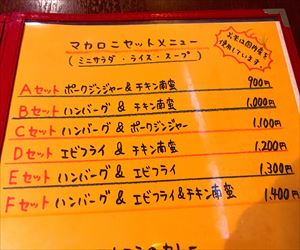 マカロニセットメニュー
(ミニサラダ・ライス・スープ)
お米は国内産を
使用しています。
Aセット ポークジンジャー & チキン南蛮 900円
Bセット ハンバーグ & チキン南蛮 1,000円
Cセット ハンバーグ & ポークジンジャー 1,100円
Dセット エビフライ & チキン南蛮 1,200円
Eセット ハンバーグ & エビフライ 1,300円
Fセット ハンバーグ & エビフライ & チキン南蛮 1,400円